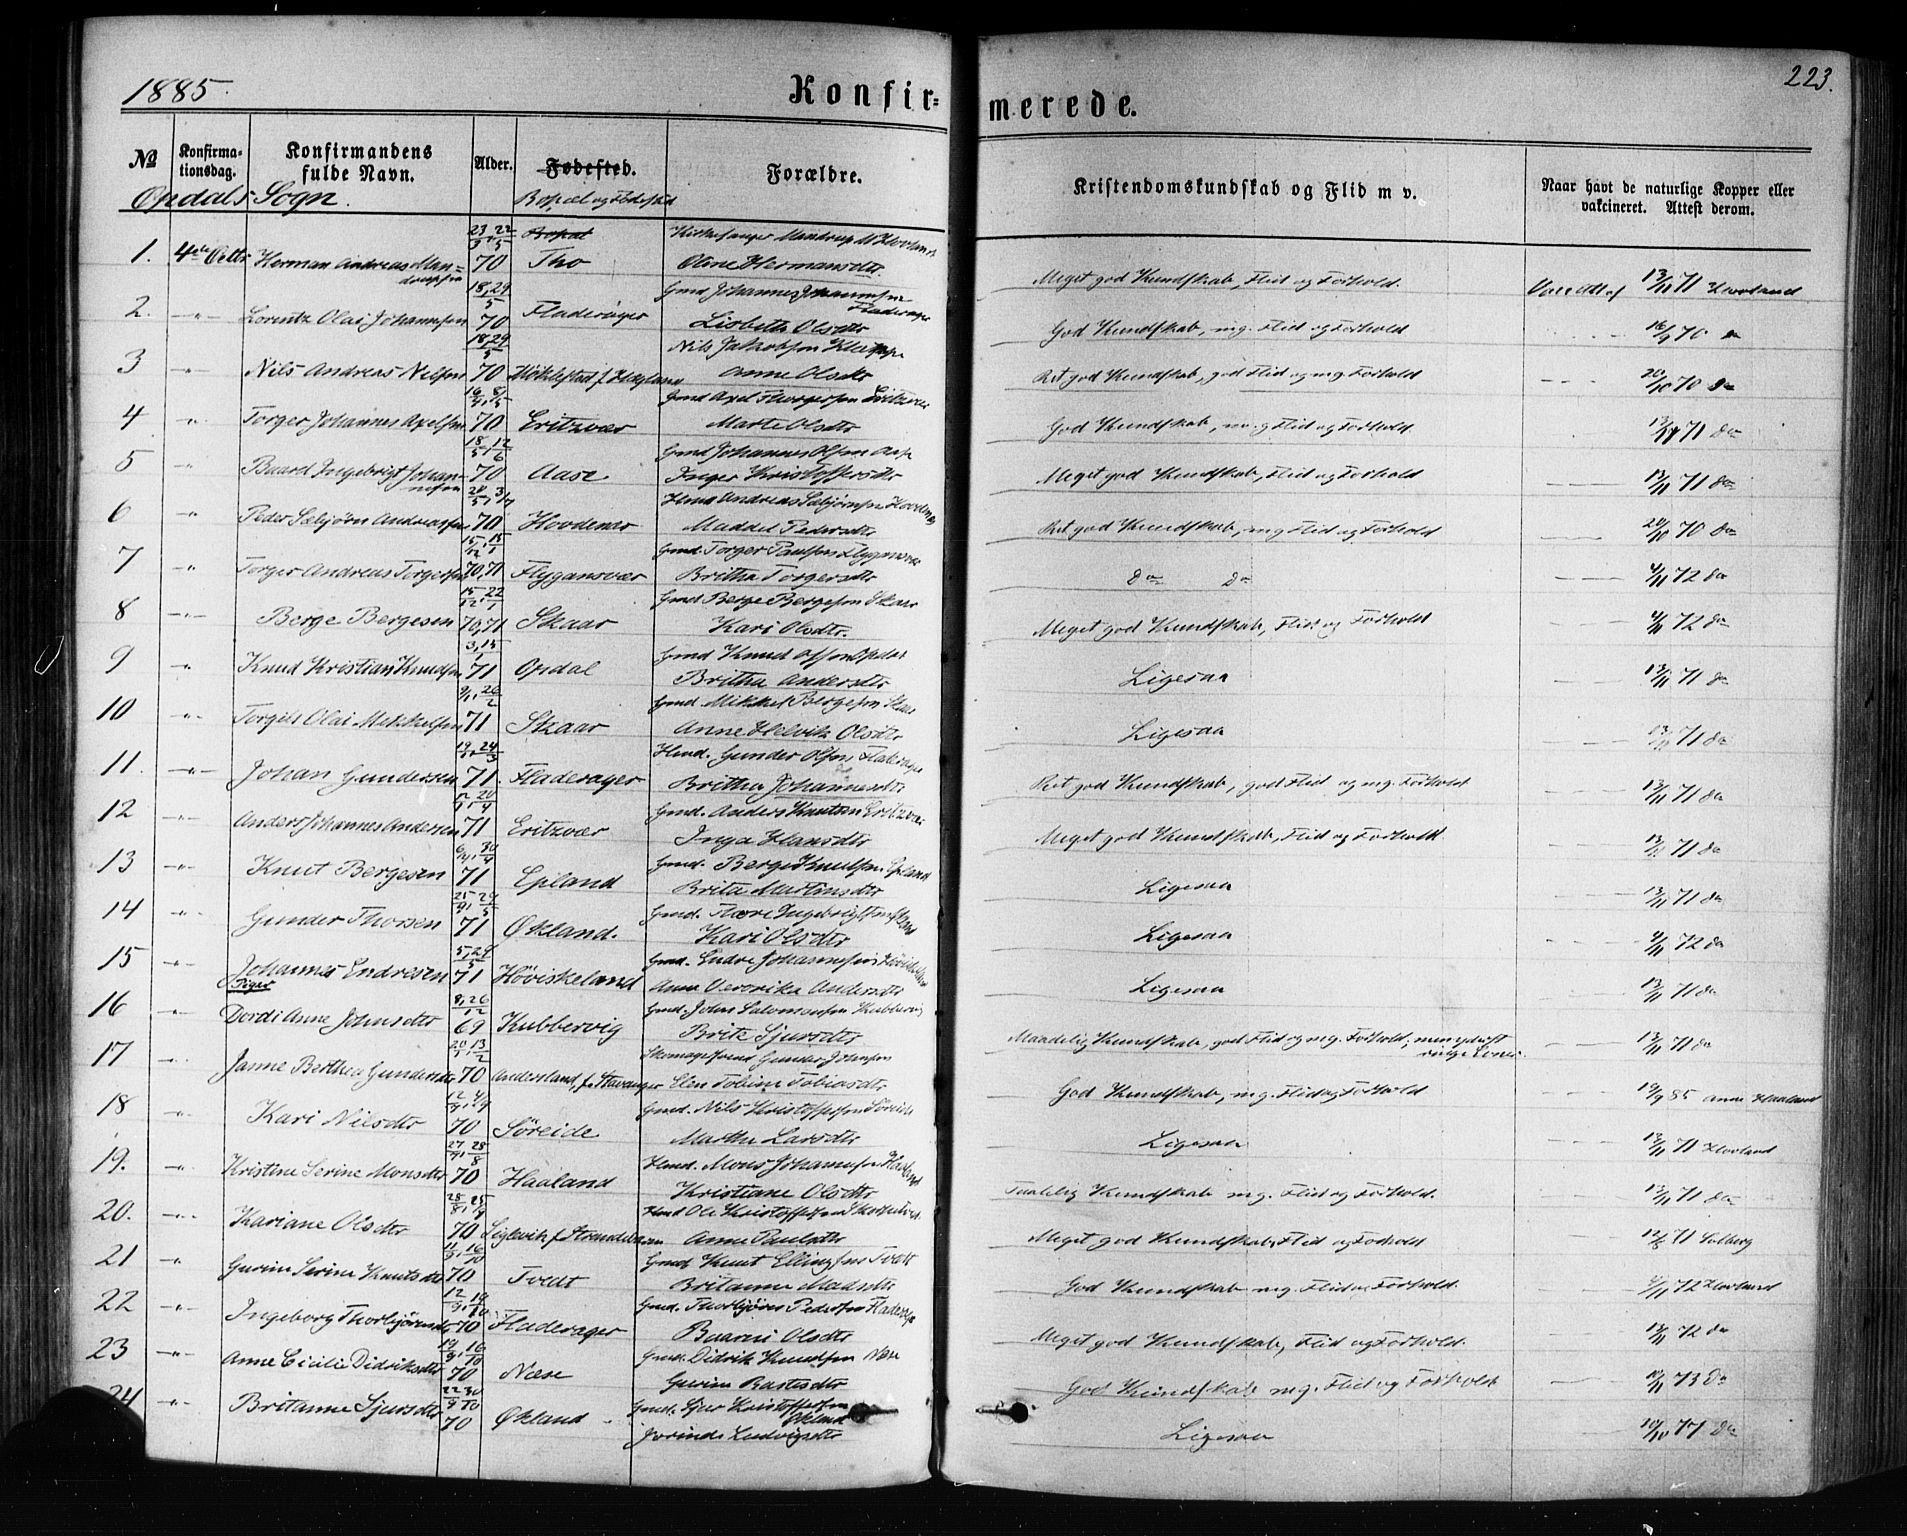 1885.
Konfir-
merede.
223.
No
Konfirma-
tionsdag.
Konfirmandens
fulde Navn.
Alder.
Fødested.
Bopæl og Fødested
Forældre.
Kristendomskundskab og Flid m v.
Naar havt de naturlige Kopper eller
vakcineret. Attest derom.
Opdals Sogn.
1. 4de Octbr Herman Andreas Man-
drupsen 70 Tho Kirkesanger Mandrup
Oline Hermansdtr. Meget god Kundskab, Flid og Forhold. 13/11 71 Hovland
2. -"- Lorentz Olai Johannesen 18, 29/5 70 Fladerager Gmd Johannes Johannesen
Fladerager
Lisbeth Olsdtr God Kundskab, mg. Flid og Forhold 70
3 -"- Nils Andreas Nilsen 18, 29/5 70 Nils Jakobsen
Anne Olsdtr Ret god Kundskab, god Flid og mg Forhold 20/10 70 do
4 " Torger Johannes Axelsen 70 Eritzvær Gmd Axel Thorgersen Eritzvær
Marte Olsdtr God Kundskab, mg Flid og Forhold. 71 do
5 " Baard Ingebrigt Johan-
nesen 18/5, 12/6 70 Aase Gmd Johannes Olsen Aase
Inger Kristoffersdtr Meget god Kundskab, Flid og Forhold 13/11 71 do
6 " Peder Sæbjørn Andreassen 70 Hovdenæs Hmd Andreas Sæbjørnsen Hovdenæs
Maddel Pedersdtr Ret god Kundskab, mg Flid og Forhold 20/10 70 do
7 " Torger Andreas Torgersen 15/12, 15/1 70,71 Flygansvær Gmd. Torger Paulsen Flygansvær
Britha Torgersdtr do do 4/11 72 do
8 -"- Berge Bergesen 15/12, 22/1 70,71 Skaar Gmd Berge Bergesen Skaar
Kari Olsdtr. Meget god Kundskab, Flid og Forhold 4/11 72 do
9 " Knud Kristian Knudsen 3, 15/1 71 Opdal Gmd Knud Olsen Opdal
Britha Andersdtr Ligesaa 13/11 71 do
10 -"- Torgils Olai Mikkelsen 9/1, 26/2 71 Skaar Gmd Mikkel Bergesen Skaar
Anne Helvik Olsdtr Ligesaa 71 do
11. -"- Johan Gundersen 71 Fladerager Hmd. Gunder Olsen Fladerager
Britha Johannesdtr Ret god Kundskab, god Flid og mg. Forhold 13/11 71 do
12 -"- Anders Johannes Andersen 71 Eritzvær Gmd. Anders Knutsen Eritzvær
Inga Hansdtr Meget god Kundskab, Flid og Forhold 13/11 71 do
13 -"- Knut Bergesen 71 Epland Gmd. Berge Knutsen Epland
Brita Martinsdtr Ligesaa 13/11 71 do
14 -"- Gunder Thorsen 71 Økland. Gmd. Thore Ingebrigtsen Økland
Kari Olsdtr Ligesaa 4/11 72 do
15 -"- Johannes Endresen 5, 29/5 71 Høviskeland Gmd. Endre Johannesen Høviskeland
Anna Veronika Andersdtr Ligesaa 13/11 71 do
Piger
16 " Dordi Anne Johnsdtr 8, 26/12 69 Kubbervig Gmd. John Salomonsen Kubbervig
Brite Sjursdtr Maadelig Kundskab, god Flid og mg. Forhold; 13/11 71 do
17 " Janne Berthea Gundersdtr 20/1, 13/2 70 Andersland, f. Stavanger Skomagersvend Gunder Johnsen
Elen Tobine Tobiasdtr God Kundskab, mg. Flid og Forhold 19/9 85 Anna Haaland
18 -"- Kari Nilsdtr 70 Søreide Gmd. Nils Kristoffersen Søreide
Martha Larsdtr Ligesaa 13/11 71 Hovland
19. " Kristine Serine Monsdtr 27/7, 28/8 70 Haaland Hmd. Mons Johannesen Haaland
Kristiane Olsdtr Taalelig Kundskab mg. Flid og Forhold. 13/11 71 do
20. -"- Kariane Olsdtr 70 Hmd Ole Kristoffersen
Anne Paulsdtr Meget god Kundskab, Flid og Forhold 71 Solberg
21 " Gurine Serine Knutsdtr 11/9, 16/10 70 Tvedt Gmd Knut Ellingsen Tvedt
Britanne Madsdtr God Kundskab mg. Flid og Forhold. 72 Hovland
22 -"- Ingeborg Thorbjørnsdtr 12/9, 19/10 70 Fladerager Gmd. Thorbjørn Pedersen Fladerager
Baarni Olsdtr Meget god Kundskab, Flid og Forhold. 72 do
23 -"- Anne Cicilie Didriksdtr 70 Næse Gmd. Didrik Knudsen Næse
Gurine Bastesdtr God Kundskab mg. Flid og Forhold 73 do
24 -"- Britanne Sjursdtr 22/9, 30/10 70 Økland Gmd. Sjur Kristoffersen
Økland
Jorinde Ludvigsdtr Ligesaa 71 do